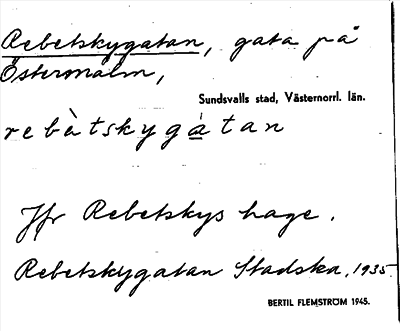 Rebetskygatan, gata på
Östermalm,
Sundsvalls stad, Västernorrl. län.
rebètskygàtan
Jfr Rebetskys hage.
Rebetskygatan Stadska, 1935
BERTIL FLEMSTRÖM 1945.